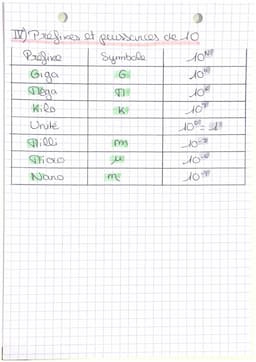 IV) Préfixes et puissances de 10
Préfixe Symbole 10
Giga G 10
Méga M 10
Kilo K 10
Unité 10 =
Milli m 10
Micro µ 10
Nano 10